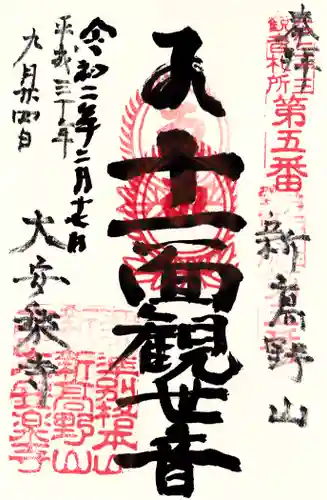 奉拝
江戸三十三
観音札所
第五番
新高野山
十一面観世音
令和二年二月十七日
平成三十年
九月廿四日
大安楽寺
準別格本山
新高野山
大安楽寺